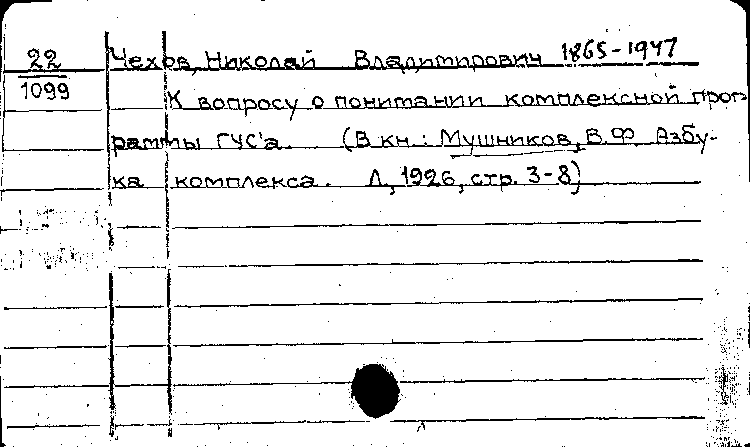 22
1099
Чехов, Николай Владимирович 1865-1947
К вопросу о понитании комплексной прог-
раммы ГУС'а. (В кн.: Мушников, В.Ф. Азбу-
ка комплекса. Л., 1926, стр. 3-8)